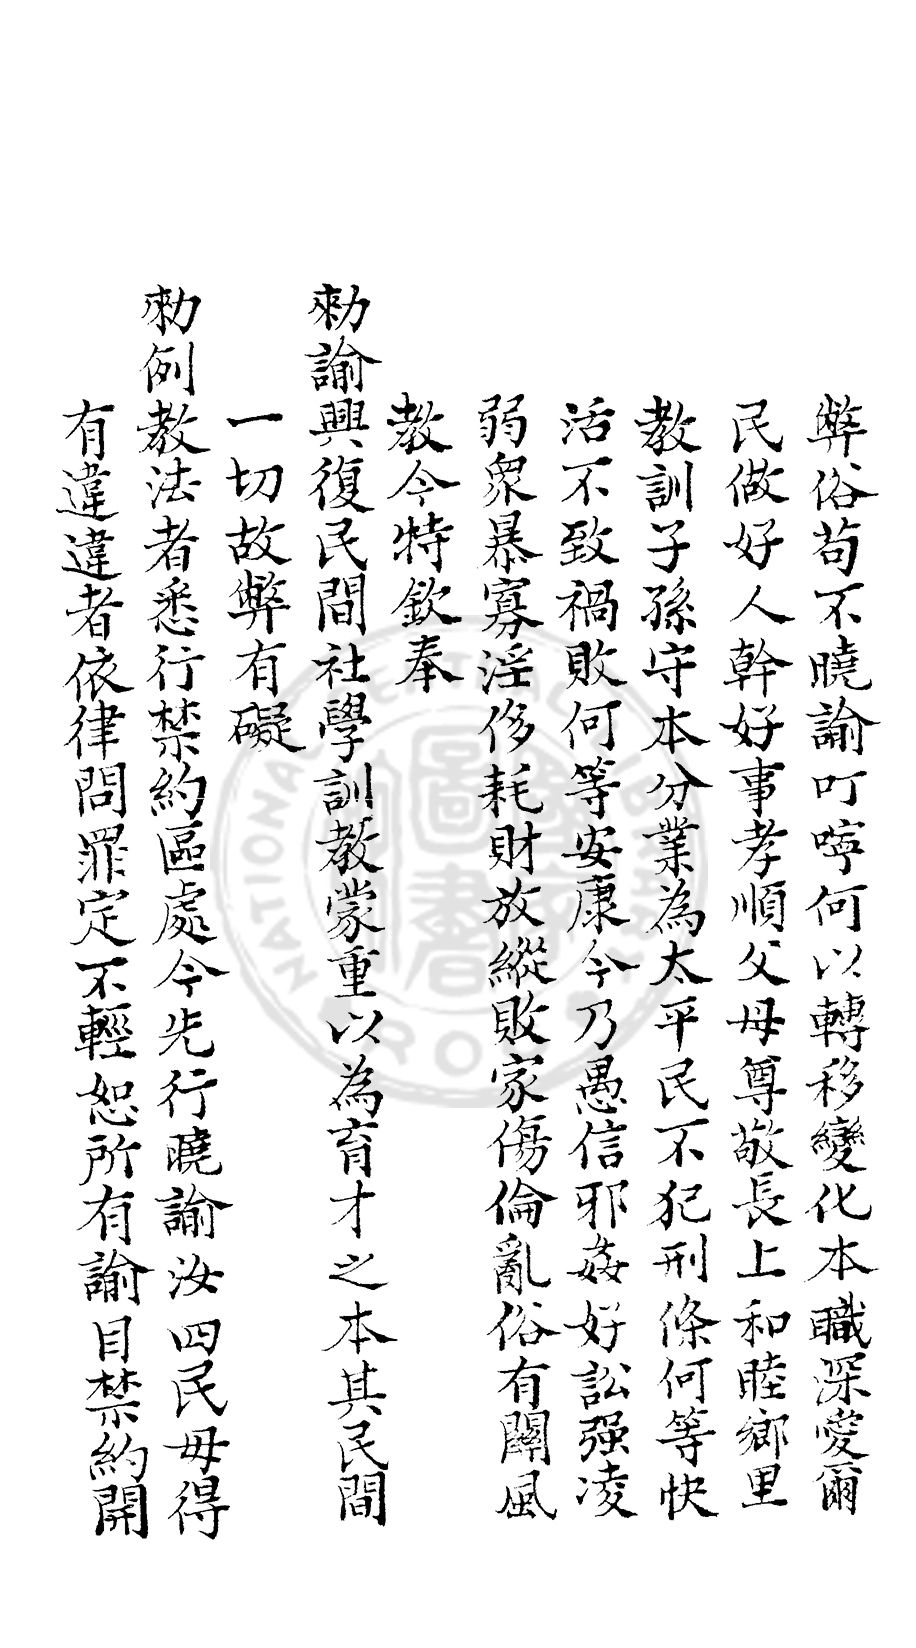 弊俗苟不曉諭叮嚀何以轉移變化本職深愛爾
民做好人幹好事孝順父母尊敬長上和睦鄉里
教訓子孫守本分業為太平民不犯刑條何等快
活不致禍敗何等安康今乃愚信邪姦好訟强凌
弱衆暴寡淫侈耗財放縱敗家傷倫亂俗有關風
教今特欽奉
勑諭興復民間社學訓教蒙重以為育才之本其民間
一切故弊有礙
勑例教法者悉行禁約區處今先行曉諭汝四民毋得
有違違者依律問罪定不輕恕所有諭目禁約開
NATIONAL CENTRAL LIBRARY